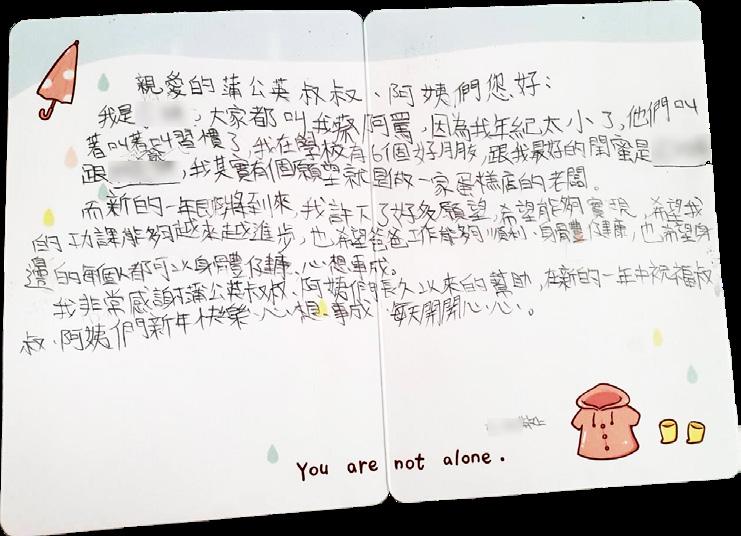 親愛的蒲公英叔叔、阿姨們您好：
我是，大家都叫我蔡阿罵，因為我年紀太小了，他們叫
著叫著叫習慣了，我在學校有6個好朋友，跟我最好的閨蜜是
跟，我其實有個願望就是做一家蛋糕店的老闆。
而新的一年即將到來，我許下了好多願望，希望能夠實現，希望我
的功課能夠越來越進步，也希望爸爸工作能夠順利、身體健康，也希望身
邊的每個人都可以身體健康、心想事成。
我非常感謝蒲公英叔叔、阿姨們長久以來的幫助，在新的一年中祝福叔
叔、阿姨們新年快樂、心想事成、每天開開心心。
敬上
You are not alone.